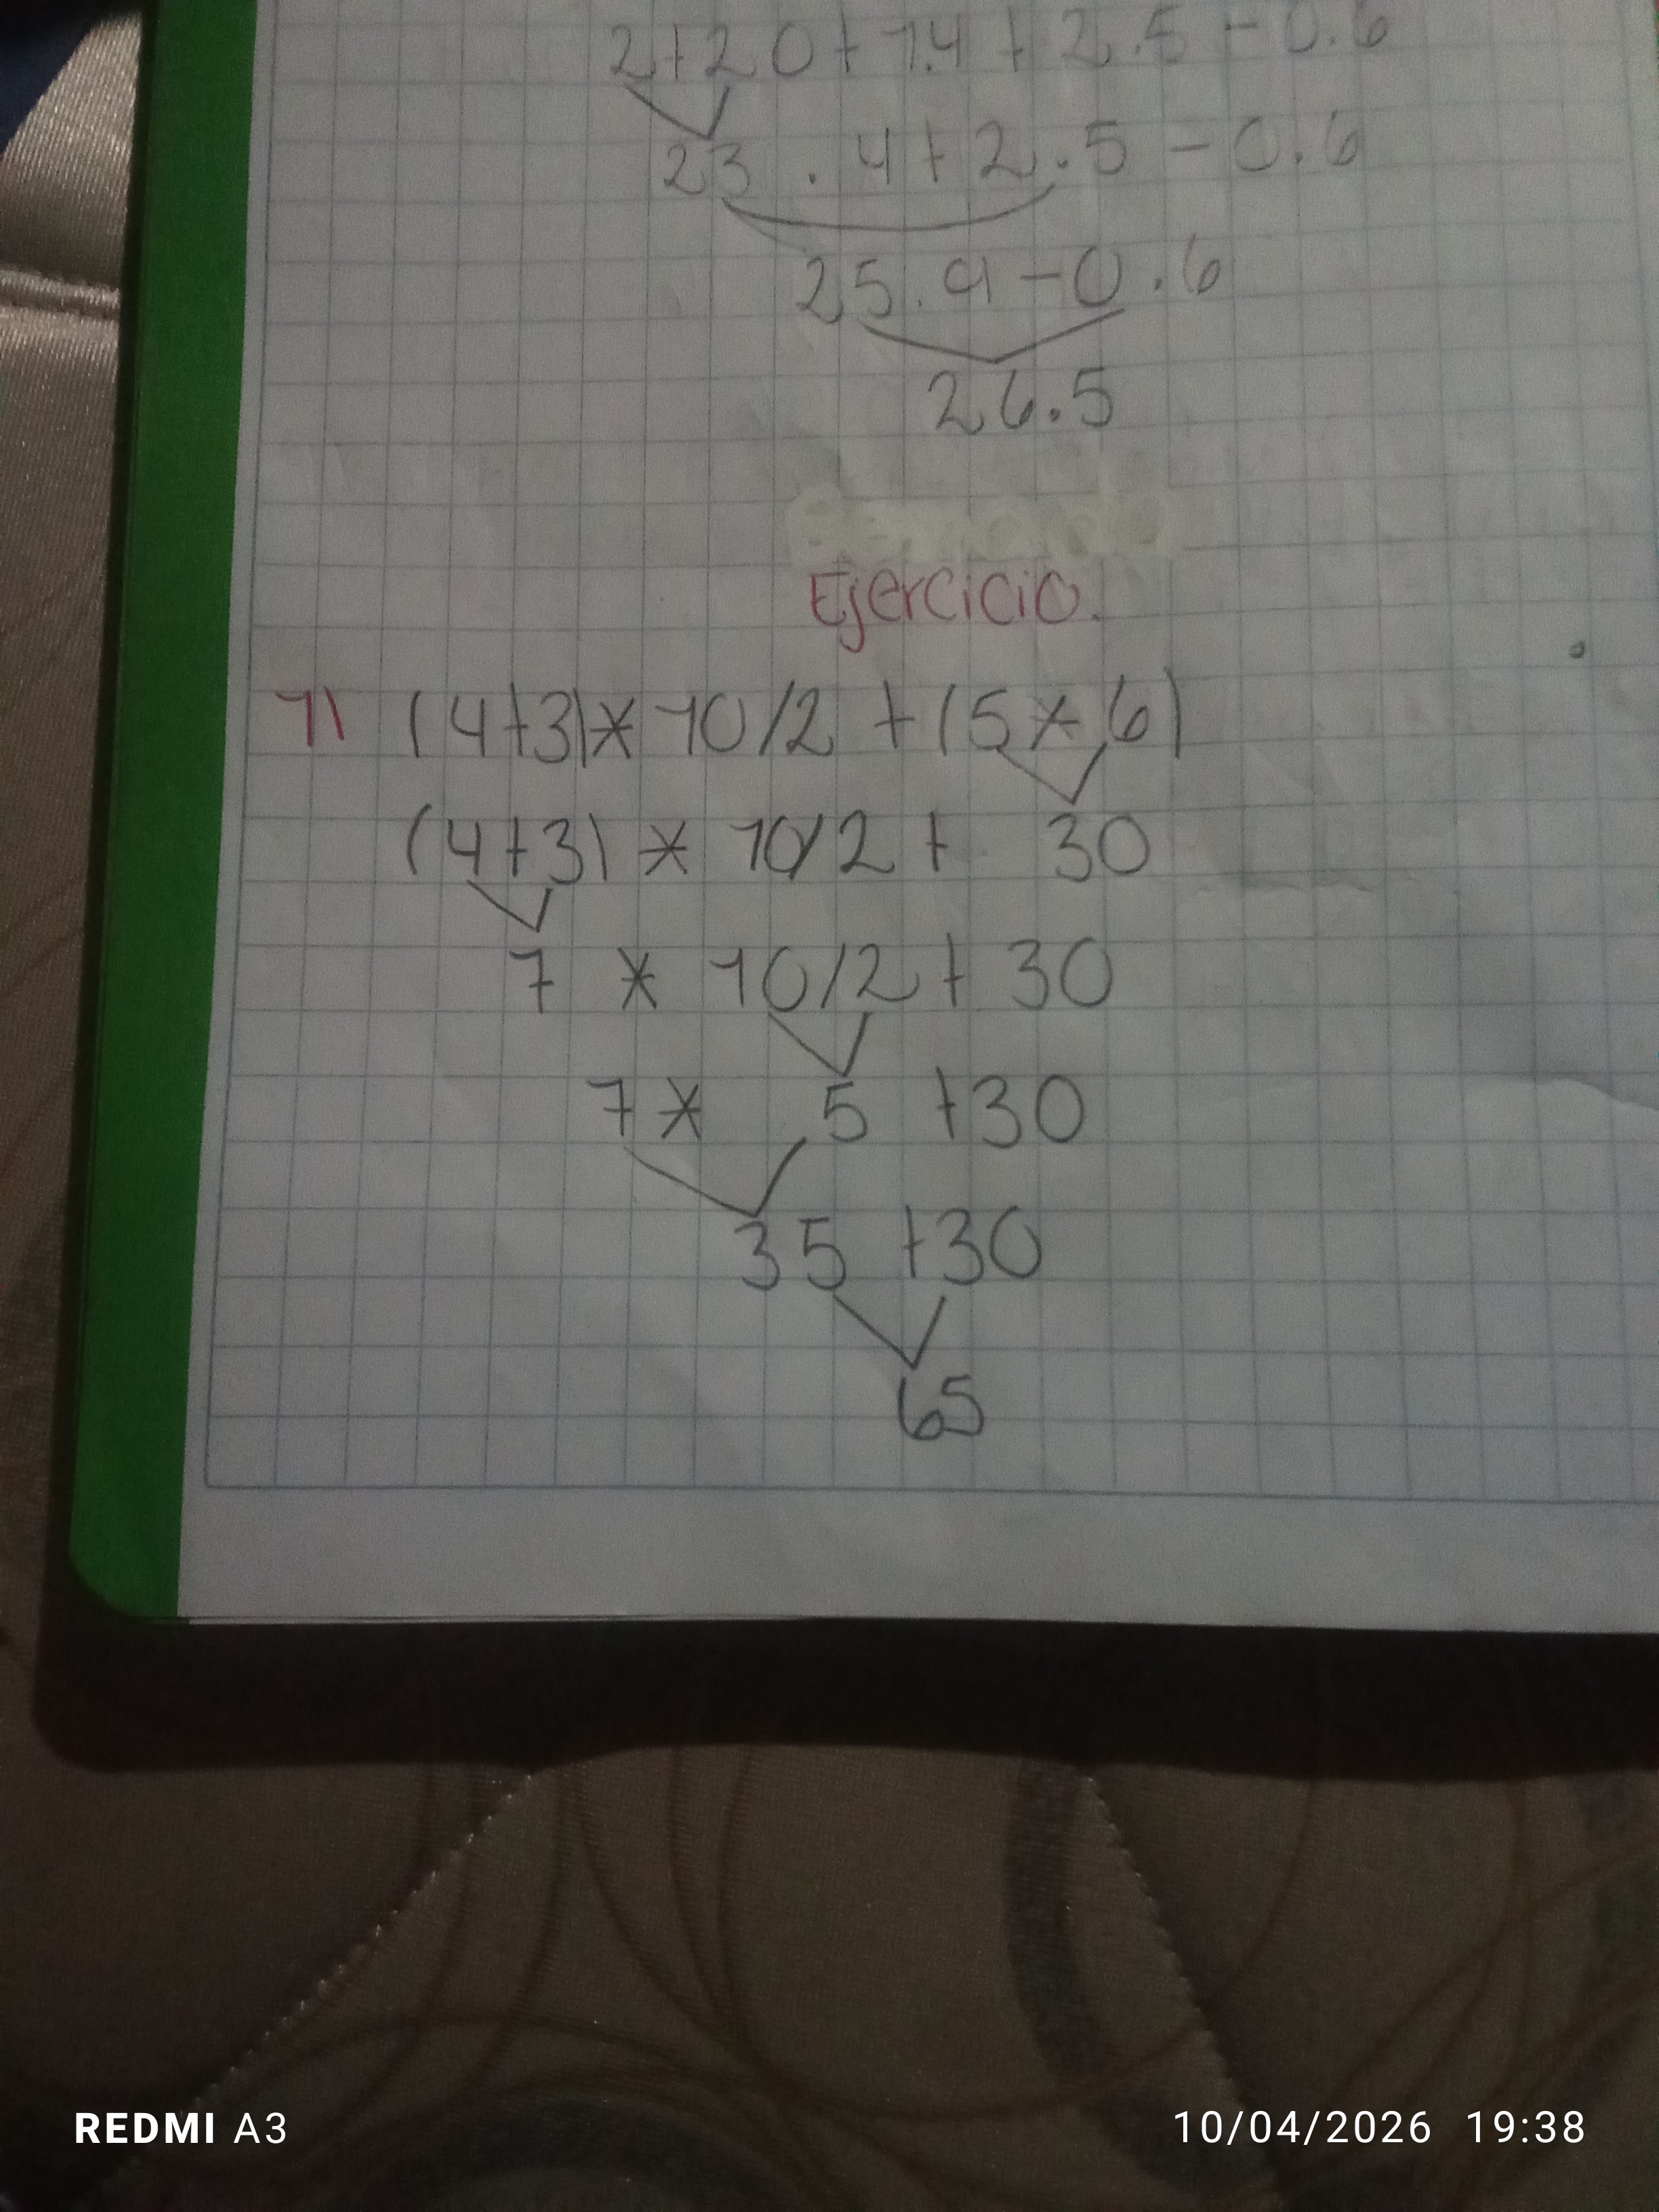 2+20+1.4+2.5-0.6
23.4+2.5-0.6
25.9-0.6
26.5
Ejercicio.
1) (4+3)*10/2+(5*6)
(4+3)*10/2+ 30
7 * 10/2+30
7* 5 +30
35 +30
65
REDMI A3
10/04/2026 19:38